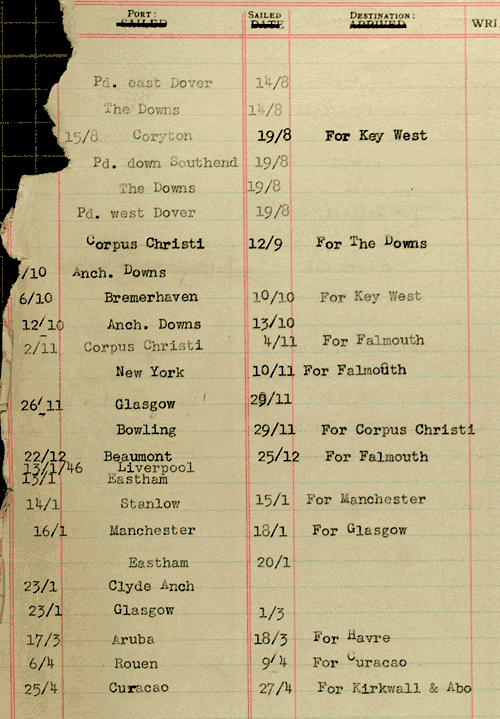 PORT: SAILED DESTINATION:
SAILED DATE ARRIVED WRI
Pd. east Dover 14/8
The Downs 14/8
15/8 Coryton 19/8 For Key West
Pd. down Southend 19/8
The Downs 19/8
Pd. west Dover 19/8
Corpus Christi 12/9 For The Downs
/10 Anch. Downs
6/10 Bremerhaven 10/10 For Key West
12/10 Anch. Downs 13/10
2/11 Corpus Christi 4/11 For Falmouth
New York 10/11 For Falmouth
26/11 Glasgow 29/11
Bowling 29/11 For Corpus Christi
22/12 Beaumont 25/12 For Falmouth
13/1/46 Liverpool
13/1 Eastham
14/1 Stanlow 15/1 For Manchester
16/1 Manchester 18/1 For Glasgow
Eastham 20/1
23/1 Clyde Anch
23/1 Glasgow 1/3
17/3 Aruba 18/3 For Havre
6/4 Rouen 9/4 For Curacao
25/4 Curacao 27/4 For Kirkwall & Abo